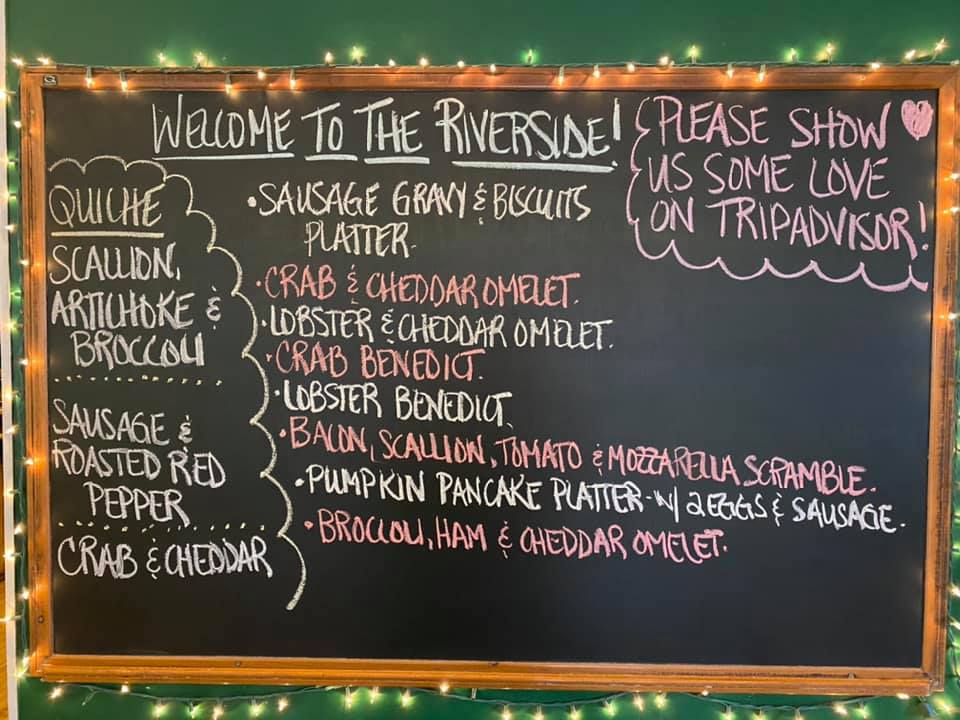 WELCOME TO THE RIVERSIDE!
PLEASE SHOW
US SOME LOVE
ON TRIPADVISOR!
QUICHE
SCALLION,
ARTICHOKE &
BROCCOLI
SAUSAGE &
ROASTED RED
PEPPER
CRAB & CHEDDAR
•SAUSAGE GRAVY & BISCUITS
PLATTER.
•CRAB & CHEDDAR OMELET.
•LOBSTER & CHEDDAR OMELET.
•CRAB BENEDICT.
•LOBSTER BENEDICT.
•BACON, SCALLION, TOMATO & MOZZARELLA SCRAMBLE.
•PUMPKIN PANCAKE PLATTER-W/ 2 EGGS & SAUSAGE.
•BROCCOLI, HAM & CHEDDAR OMELET.